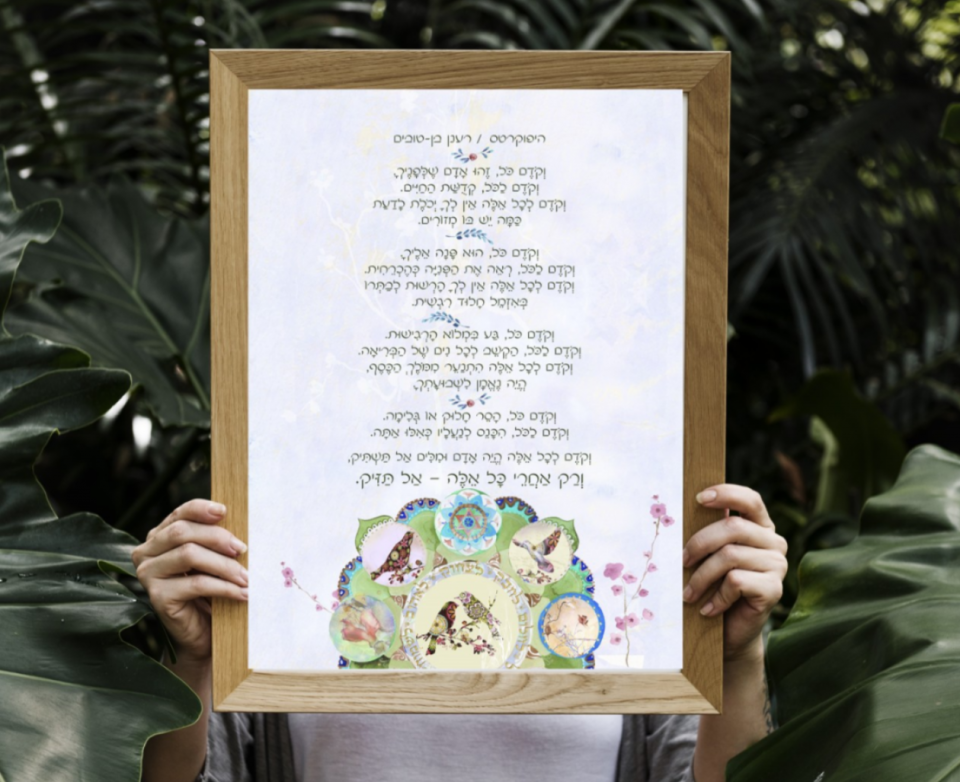 היפוקרטס / רענן בן-טובים
וְקֹדֶם כֹּל, זֶהוּ אָדָם שֶׁלְּפָנֶיךָ,
וְקֹדֶם לַכֹּל, קְדֻשַּׁת הַחַיִּים.
וְקֹדֶם לְכָל אֵלֶּה אֵין לְךָ יְכֹלֶת לָדַעַת
כַּמָּה יֵשׁ בּוֹ מְזוֹרִים.
וְקֹדֶם כֹּל, הוּא פָּנָה אֵלֶיךָ,
וְקֹדֶם לַכֹּל, רְאֵה אֶת הַפְּנִיָּה כְּהֶכְרֵחִית.
וְקֹדֶם לְכָל אֵלֶּה אֵין לְךָ הָרְשׁוּת לְבַתְּרוֹ
כְּאִזְמֵל חָלוּד רִגְשִׁית.
וְקֹדֶם כֹּל, גַּע בִּמְלוֹא הָרְגִישׁוּת.
וְקֹדֶם לַכֹּל, הַקְשֵׁב לְכָל נִים שֶׁל הַבְּרִיאָה.
וְקֹדֶם לְכָל אֵלֶּה הִתְנַעֵר מִמֹּלֶךְ הַכֶּסֶף,
הֱיֵה נֶאֱמָן לִשְׁבוּעָתְךָ.
וְקֹדֶם כֹּל, הָסֵר חָלוּק אוֹ גְּלִימָה.
וְקֹדֶם לַכֹּל, הִכָּנֵס לִנְעָלָיו כְּאִלּוּ אַתָּה.
וְקֹדֶם לְכָל אֵלֶּה הֱיֵה אָדָם וּמִלִּים אַל תַּשְׁתִּיק,
וְרַק אַחֲרֵי כָּל אֵלֶּה – אַל תַּזִּיק.